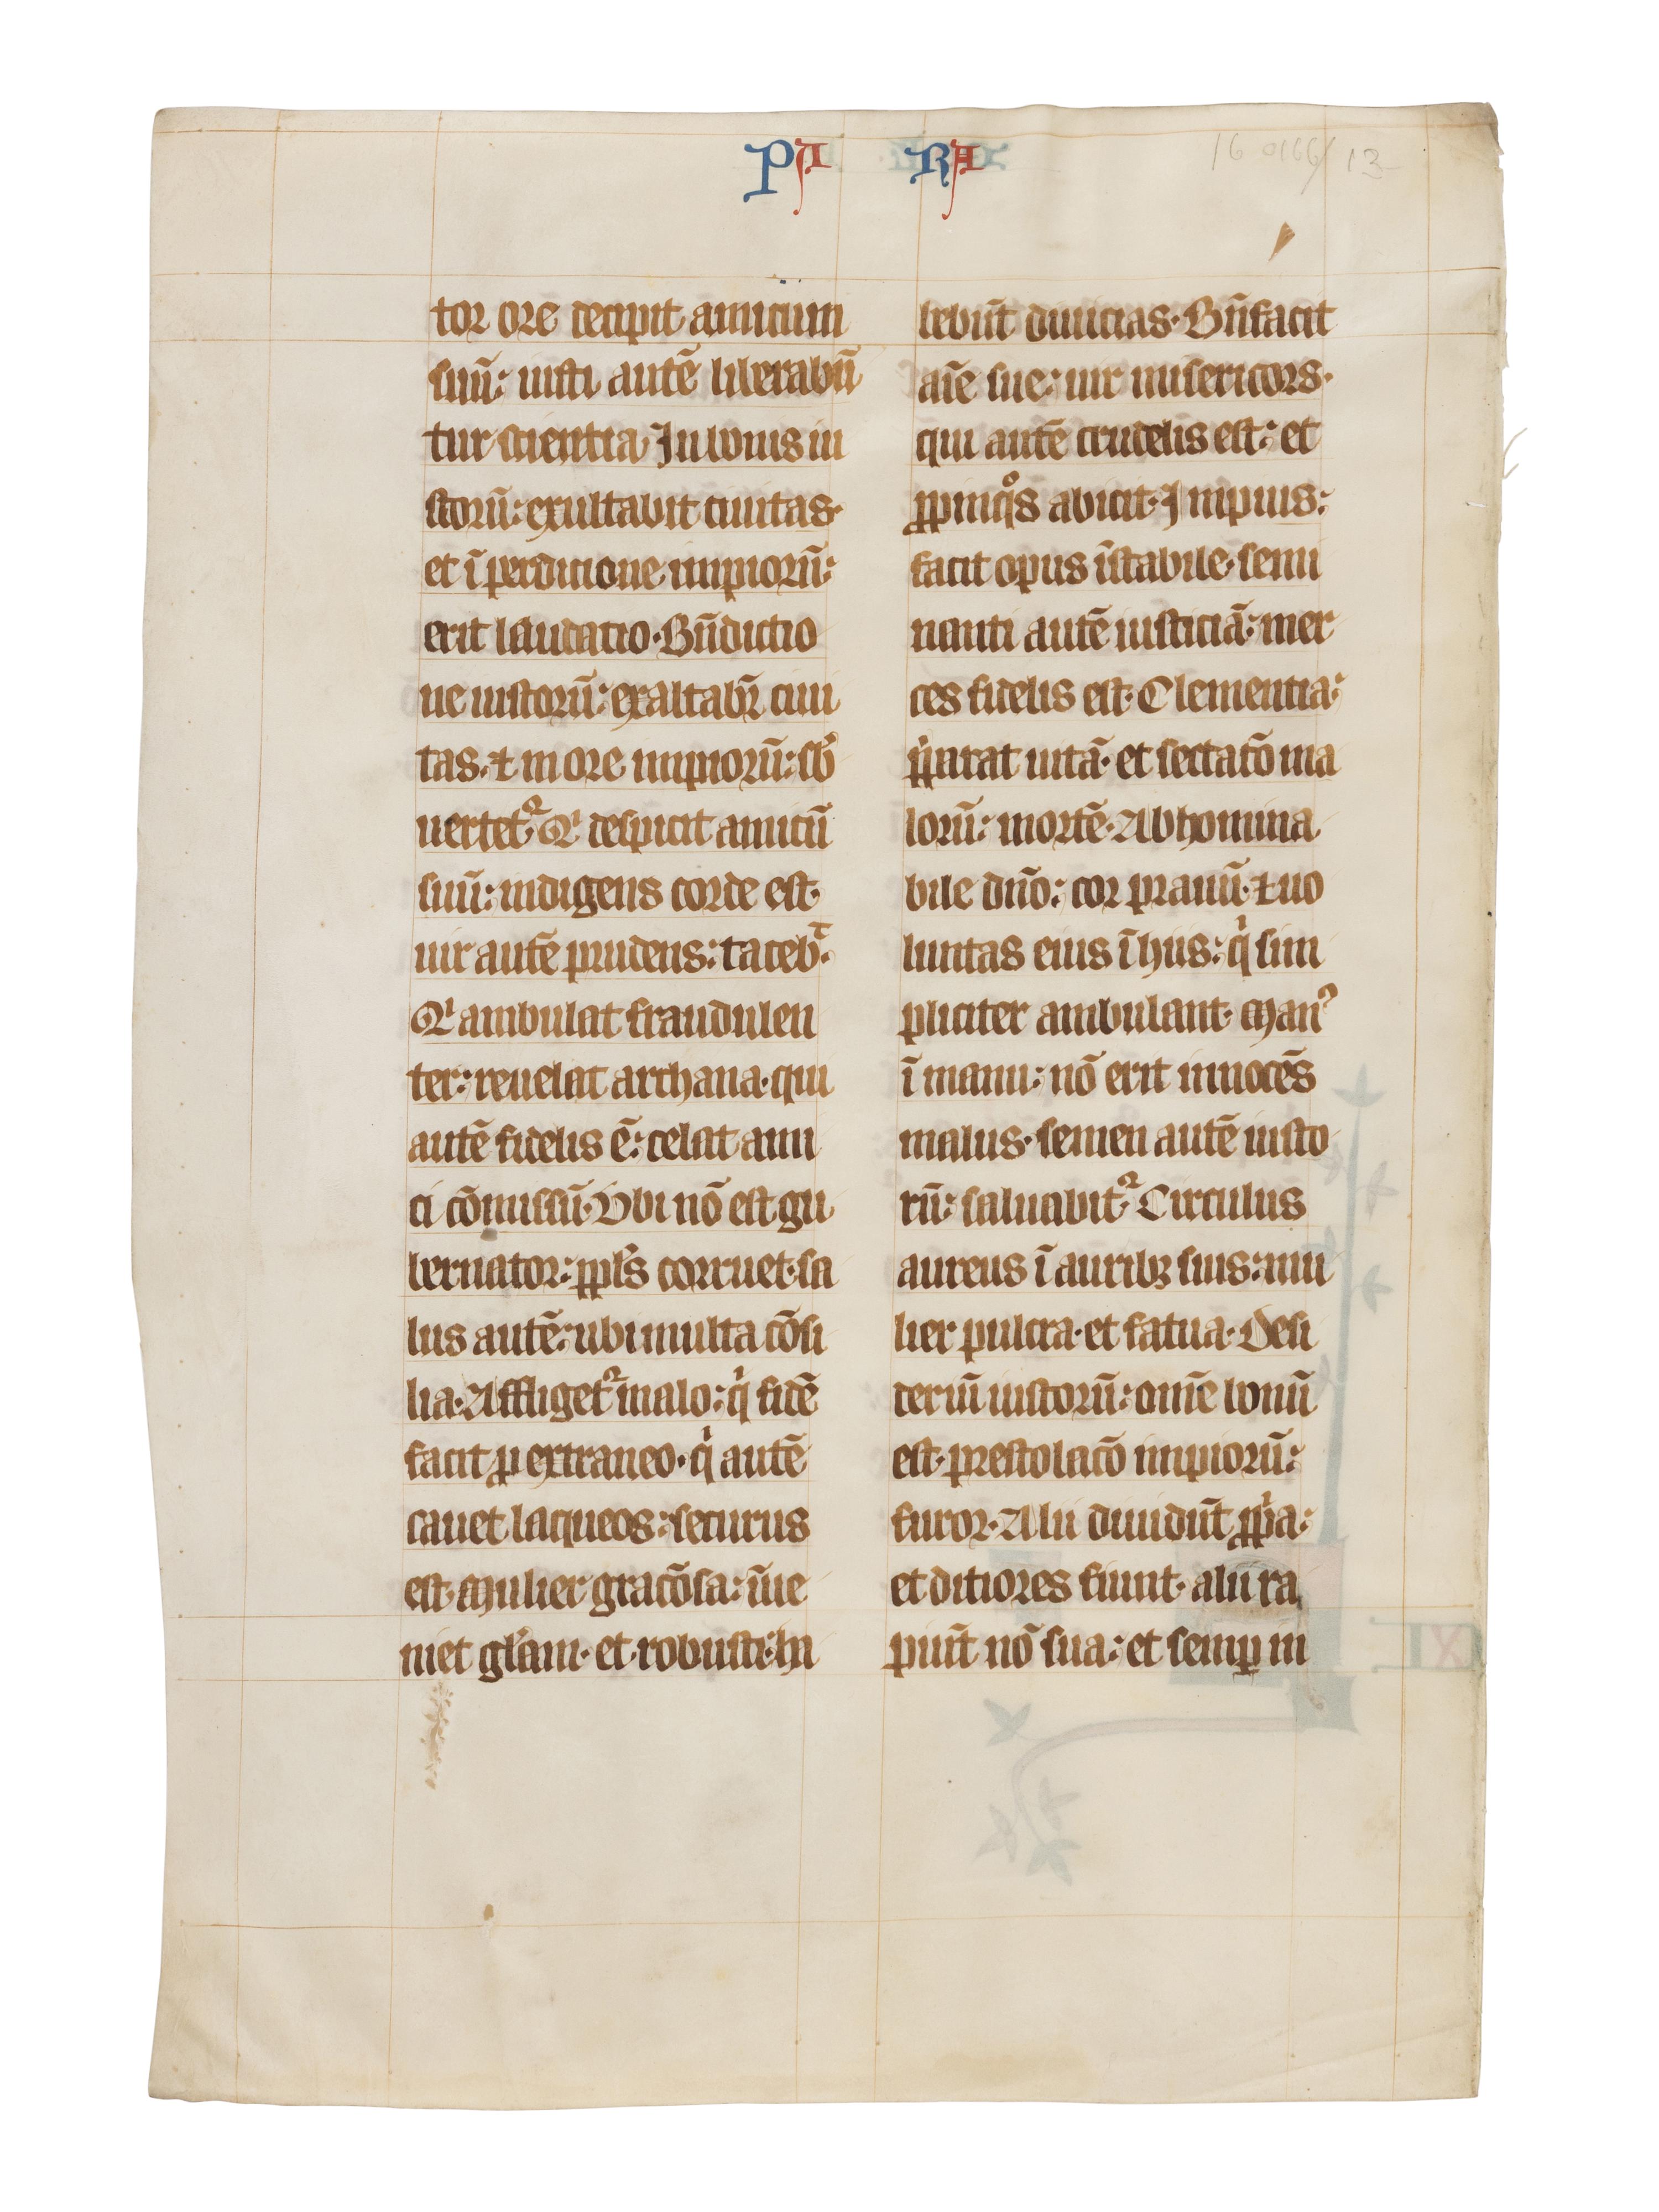 PA RA
16 0166/13
tor ore decipit amicum
suū: iusti autē liberabū
tur scientia. In bonis iu
storū: exultabit ciuitas.
et ī perdicione impiorū:
erit laudacio. Bn̄dictio
ne iustorū: exaltabr̄ ciui
tas. ⁊ in ore impiorū: sb̓
uertet᷑. Qͥ despicit amicū
suū: indigens corde est.
uir autē prudens: tacebᵗ.
Qͥ ambulat fraudulen
ter: reuelat archana. qui
autē fidelis ē: celat ami
ci cōmissū. Vbi nō est gu
bernator: ppl̓s corruet. sa
lus autē: ubi multa cōsi
lia. Affliget᷑ malo: qͥ fidē
facit ꝓ extraneo. qͥ autē
cauet laqueos: securus
est. Mulier gracōsa: īue
niet gl̓am. et robusti: ha
bebūt diuicias. Bn̄facit
aīe sue: uir misericors.
qui autē crudelis est: et
ꝓpinqͦs abicit. Impius:
facit opus īstabile. semi
nanti autē iusticiā: mer
ces fidelis est. Clementia:
p̄parat uitā. et sectatō ma
lorū: mortē. Abhomina
bile dn̄o: cor prauū. ⁊ uo
luntas eius ī hiis: qͥ sim
pliciter ambulant. Manꝰ
ī manu: nō erit innocēs
malus. semen autē iusto
rū: saluabit᷑. Circulus
aureus ī auribꝫ suis: mu
lier pulcra. et fatua. Desi
deriū iustorū: om̄e bonū
est. prestolacō impiorū:
furor. Alii diuidūt ꝓpͥa:
et ditiores fiunt. alii ra
piūt nō sua: et semꝑ in